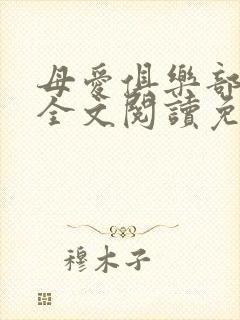 母愛俱樂部
全文閱讀免
穆木子